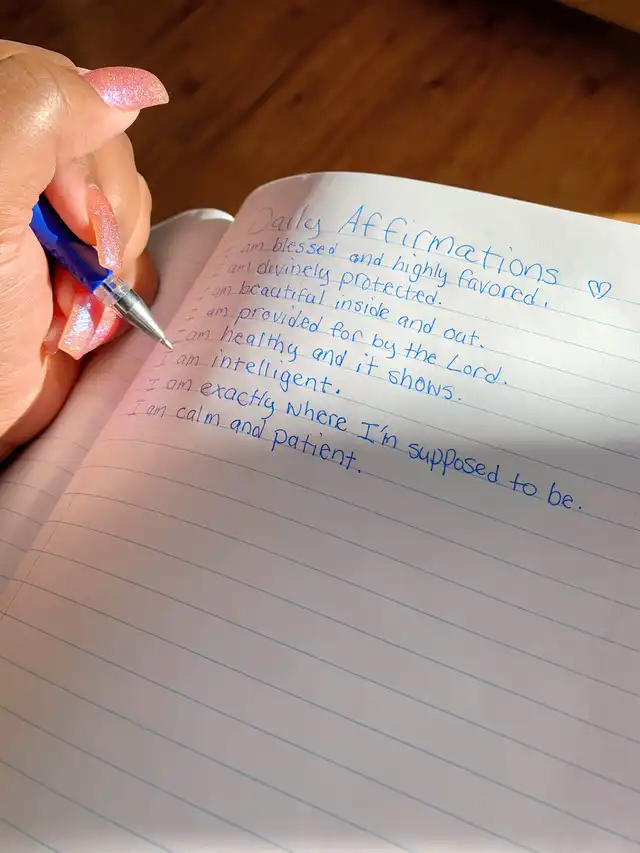 Daily Affirmations ♡
I am blessed and highly favored.
I am divinely protected.
I am beautiful inside and out.
I am provided for by the Lord.
I am healthy and it shows.
I am intelligent.
I am exactly where I'm supposed to be.
I am calm and patient.